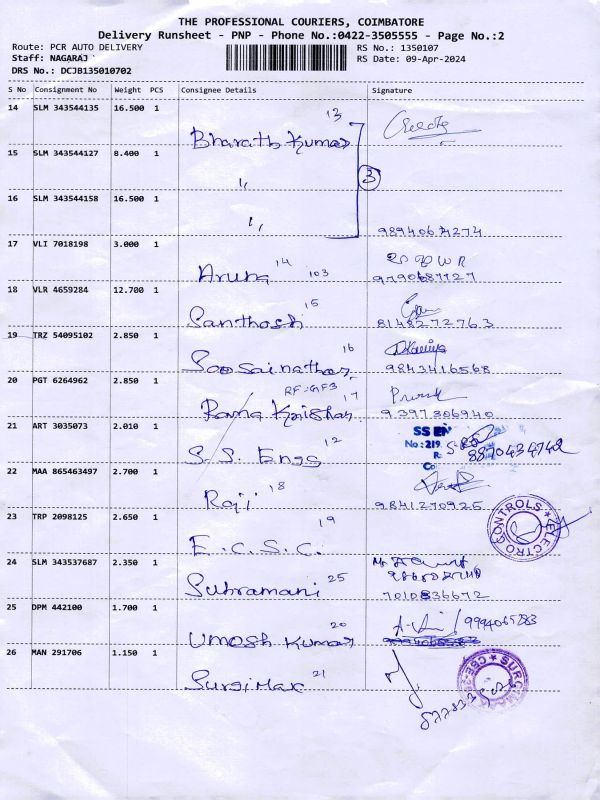 THE PROFESSIONAL COURIERS, COIMBATORE
Delivery Runsheet - PNP - Phone No.:0422-3505555 - Page No.:2
Route: PCR AUTO DELIVERY RS No.: 1350107
Staff: NAGARAJ RS Date: 09-Apr-2024
DRS No.: DCJB135010702
S No Consignment No Weight PCS Consignee Details Signature
14 SLM 343544135 16.500 1 Bharath Kumar 13
15 SLM 343544127 8.400 1 ,,
3
16 SLM 343544158 16.500 1 ,, 9894067274
17 VLI 7018198 3.000 1 Aruna 14 103 9790687727
18 VLR 4659284 12.700 1 Santhosh 15 8148272763
19 TRZ 54095102 2.850 1 Soosainathan 16 9843416568
20 PGT 6264962 2.850 1 RF-GF3 Rama Krishan 17 9397306940
21 ART 3035073 2.010 1 S.S. Engg 12 8870434742
SS EN
No:219,
22 MAA 865463497 2.700 1 Raji 18 9841270925
23 TRP 2098125 2.650 1 E.C.S.C. 19
ELECTRO CONTROLS
24 SLM 343537687 2.350 1 Subramani 25 7010836672
25 DPM 442100 1.700 1 Umesh Kumar 20 9994065283
26 MAN 291706 1.150 1 Surgimax 21